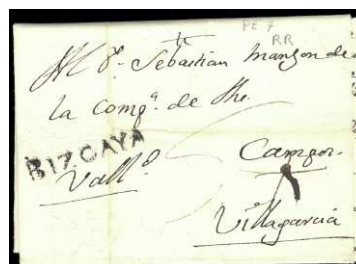 PE 7
RR
Al Pe. Sebastian Manzon de
la Compª. de Jhs.
B17CAYA
Vallᵈ.
Campos.
Villagarcia